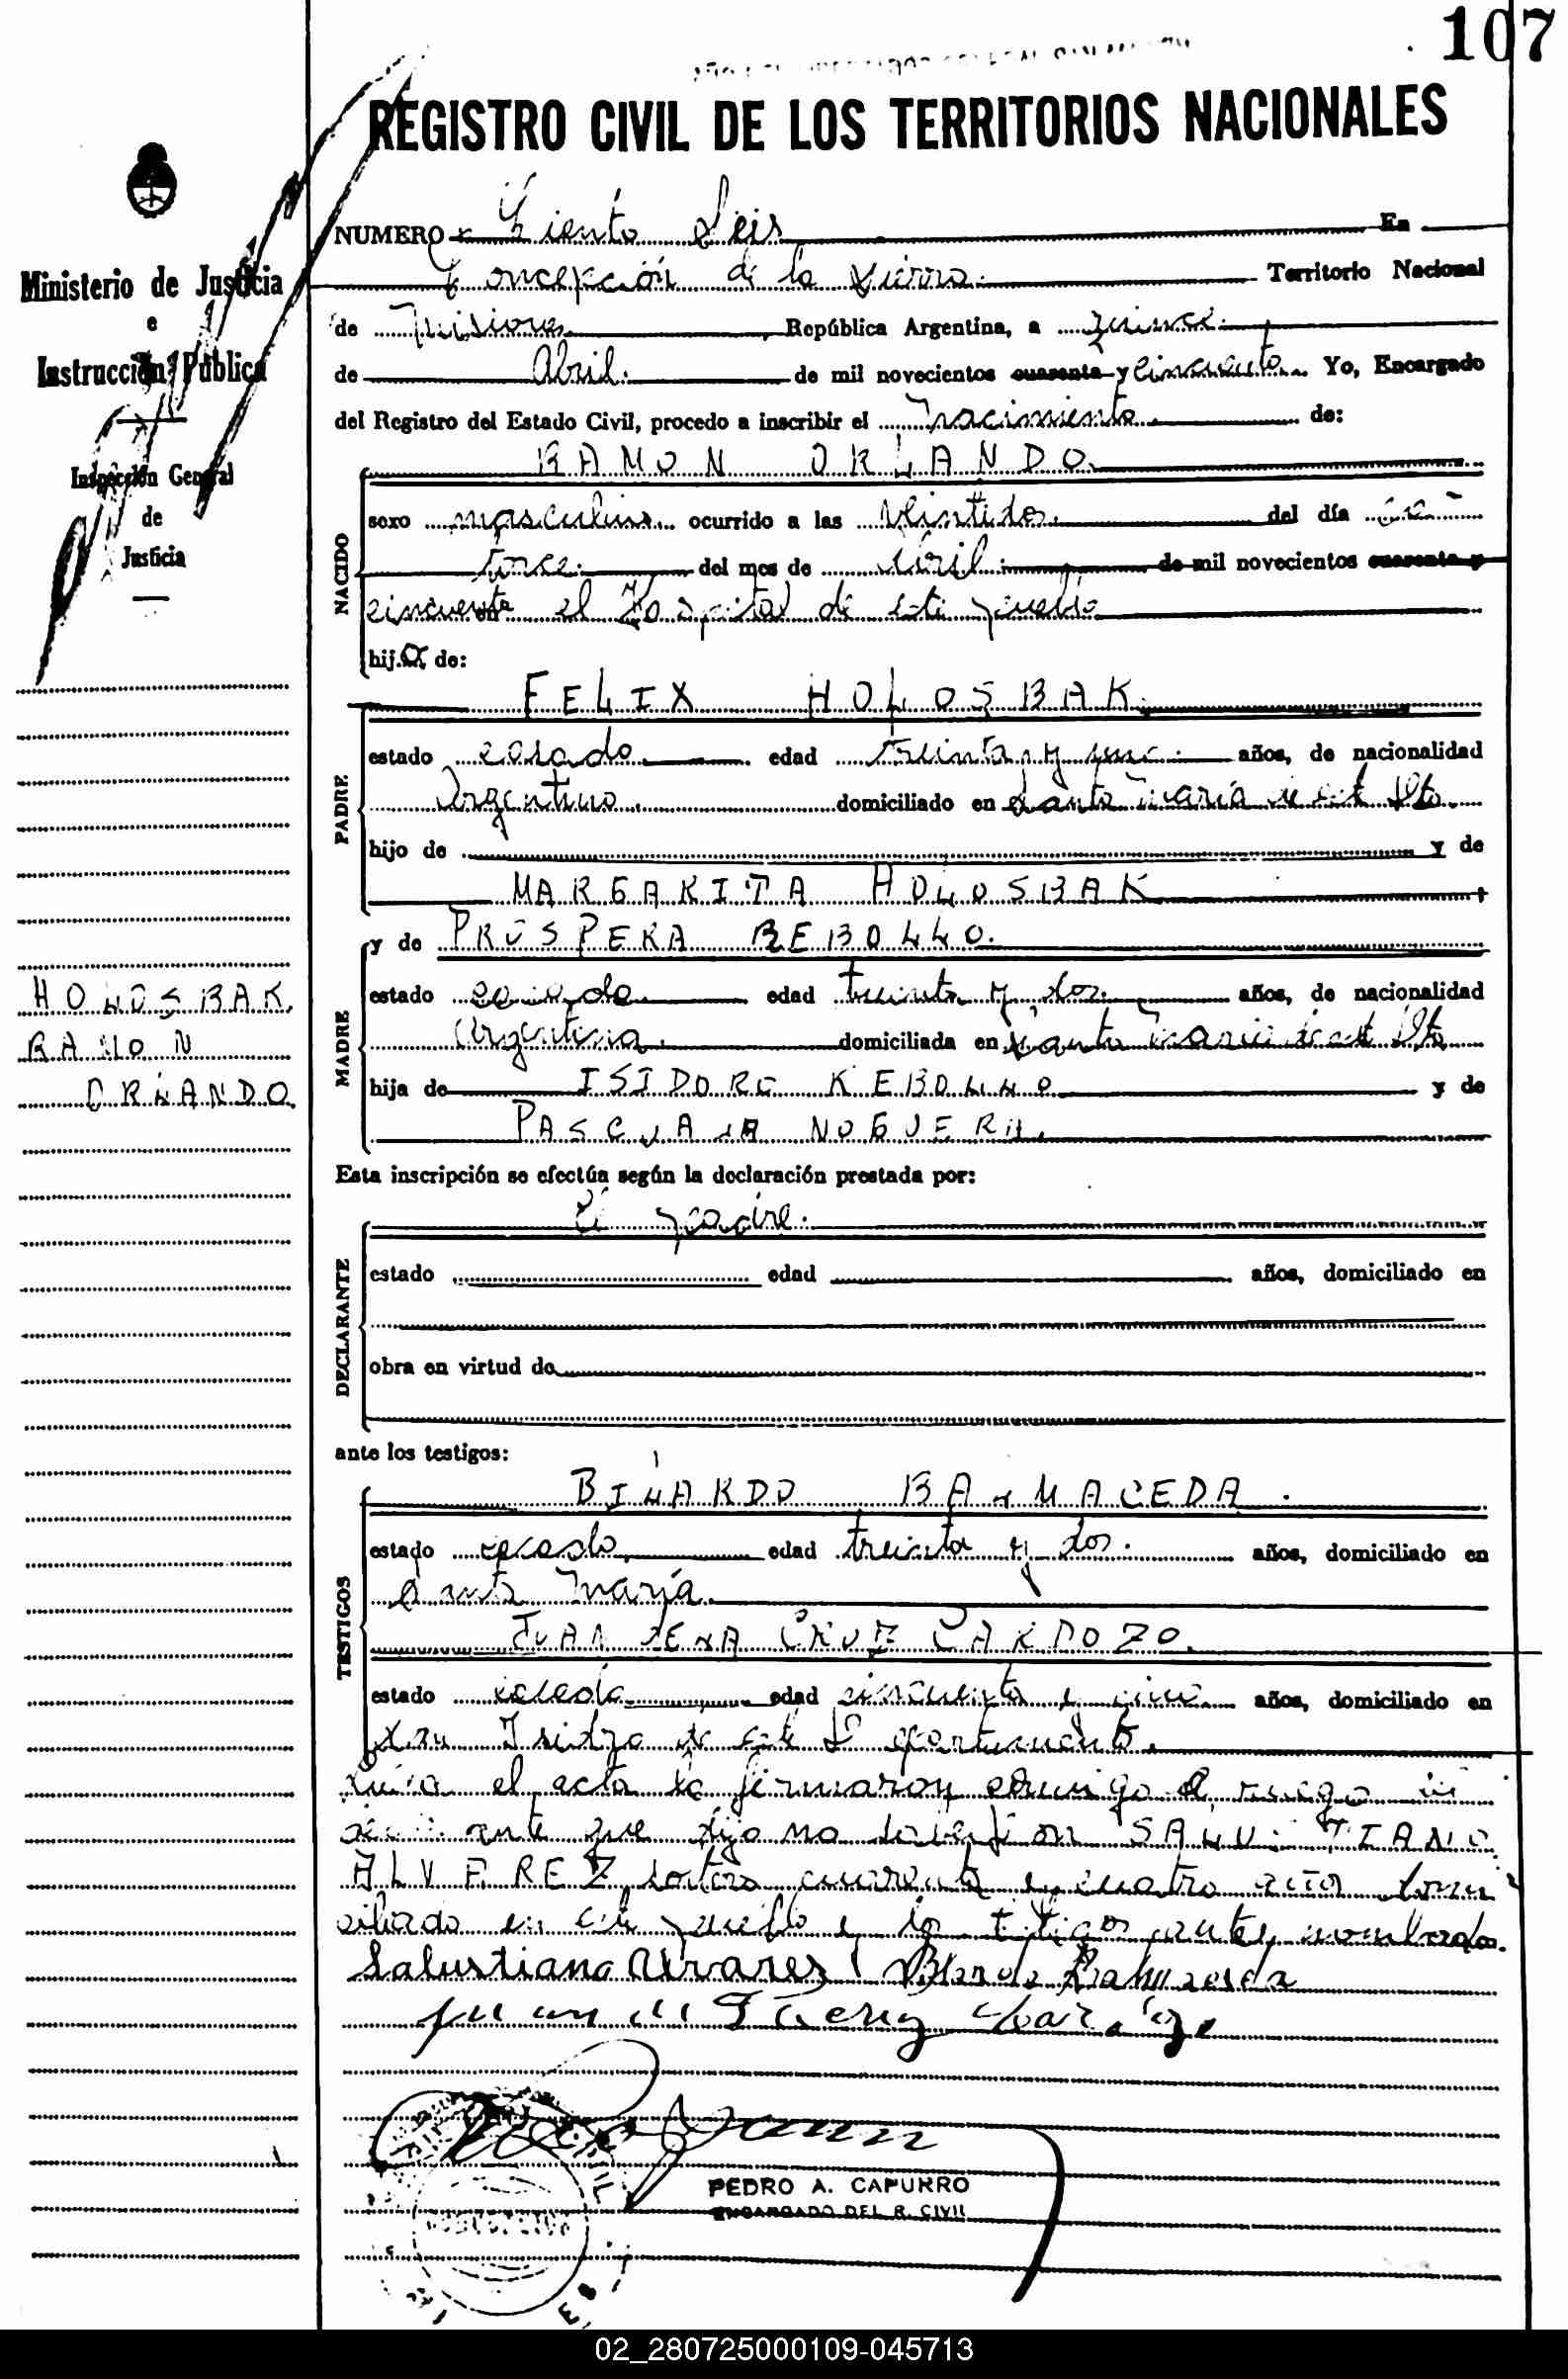 107
REGISTRO CIVIL DE LOS TERRITORIOS NACIONALES
Ministerio de Justicia
e
Instrucción Pública
Inspección General
de
Justicia
HOLOSBAK
RAMON
ORLANDO
NUMERO Ciento Seis En
Concepción de la Sierra. Territorio Nacional
de Misiones República Argentina, a quince
de Abril. de mil novecientos cuarenta y cincuenta Yo, Encargado
del Registro del Estado Civil, procedo a inscribir el nacimiento de:
RAMON ORLANDO.
NACIDO
sexo masculino ocurrido a las veintidos del día
once. del mes de Abril. de mil novecientos cuarenta y
cincuenta en el Hospital de este pueblo
hijo de:
FELIX HOLOSBAK.
PADRE
estado casado edad treinta y uno años, de nacionalidad
Argentino. domiciliado en Santa María de este Dto.
hijo de y de
MARGARITA HOLOSBAK
y de PROSPERA REBOLLO.
MADRE
estado casada edad treinta y dos. años, de nacionalidad
Argentina. domiciliada en Santa María de este Dto.
hija de ISIDORO REBOLLO y de
PASCUALA NOGUERA.
Esta inscripción se efectúa según la declaración prestada por:
El padre.
DECLARANTE
estado edad años, domiciliado en
obra en virtud de
ante los testigos:
BILARDO BALMACEDA.
TESTIGOS
estado casado edad treinta y dos. años, domiciliado en
Santa María.
JUAN DE LA CRUZ CARDOZO.
estado casado edad cincuenta y cinco años, domiciliado en
San Isidro de este Departamento.
el acta la firmaron conmigo a ruego del
que dijo no saber firmar SALUSTIANO
ALVEREZ, soltero cuarenta y cuatro años domi
ciliado en este pueblo y los testigos antes nombrados.
Salustiano Alvarez Bilardo Balmaceda
juan de la cruz
PEDRO A. CAPURRO
ENCARGADO DEL R. CIVIL
02_280725000109-045713